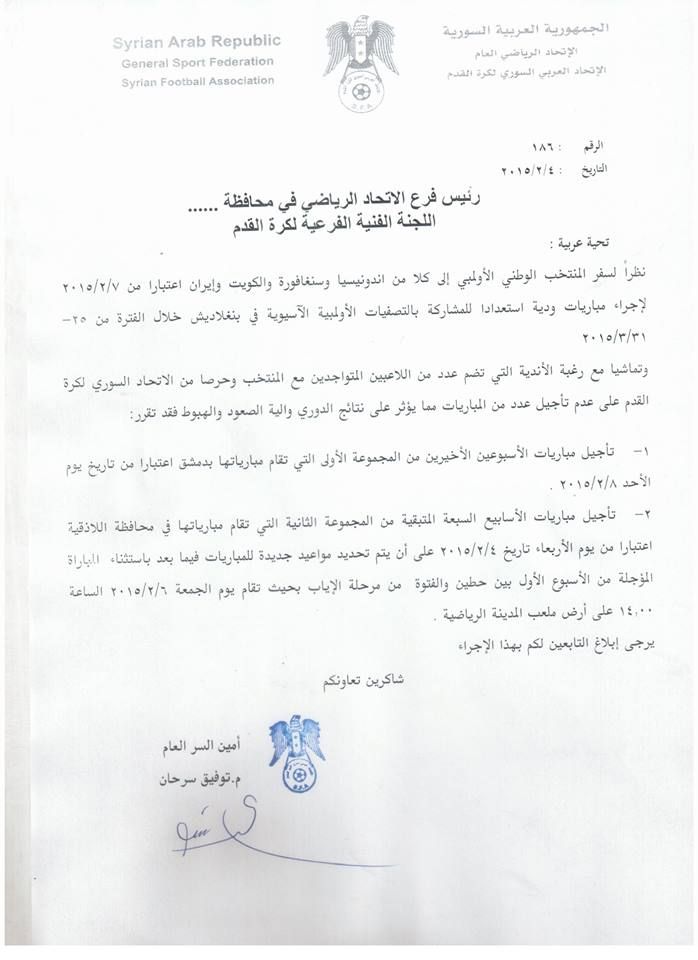 Syrian Arab Republic
General Sport Federation
Syrian Football Association
الجمهورية العربية السورية
الإتحاد الرياضي العام
الإتحاد العربي السوري لكرة القدم
S.F.A
الرقم : ١٨٦
التاريخ : ٢٠١٥/٢/٤
رئيس فرع الاتحاد الرياضي في محافظة ......
اللجنة الفنية الفرعية لكرة القدم
تحية عربية :
نظراً لسفر المنتخب الوطني الأولمبي إلى كلا من اندونيسيا وسنغافورة والكويت وإيران اعتبارا من ٢٠١٥/٢/٧
لإجراء مباريات ودية استعدادا للمشاركة بالتصفيات الأولمبية الآسيوية في بنغلاديش خلال الفترة من ٢٥-
٢٠١٥/٣/٣١
وتماشيا مع رغبة الأندية التي تضم عدد من اللاعبين المتواجدين مع المنتخب وحرصا من الاتحاد السوري لكرة
القدم على عدم تأجيل عدد من المباريات مما يؤثر على نتائج الدوري والية الصعود والهبوط فقد تقرر:
١- تأجيل مباريات الأسبوعين الأخيرين من المجموعة الأولى التي تقام مبارياتها بدمشق اعتبارا من تاريخ يوم
الأحد ٢٠١٥/٢/٨ .
٢- تأجيل مباريات الأسابيع السبعة المتبقية من المجموعة الثانية التي تقام مبارياتها في محافظة اللاذقية
اعتبارا من يوم الأربعاء تاريخ ٢٠١٥/٢/٤ على أن يتم تحديد مواعيد جديدة للمباريات فيما بعد باستثناء المباراة
المؤجلة من الأسبوع الأول بين حطين والفتوة من مرحلة الإياب بحيث تقام يوم الجمعة ٢٠١٥/٢/٦ الساعة
١٤,٠٠ على أرض ملعب المدينة الرياضية .
يرجى إبلاغ التابعين لكم بهذا الإجراء
شاكرين تعاونكم
أمين السر العام
م.توفيق سرحان
S.F.A